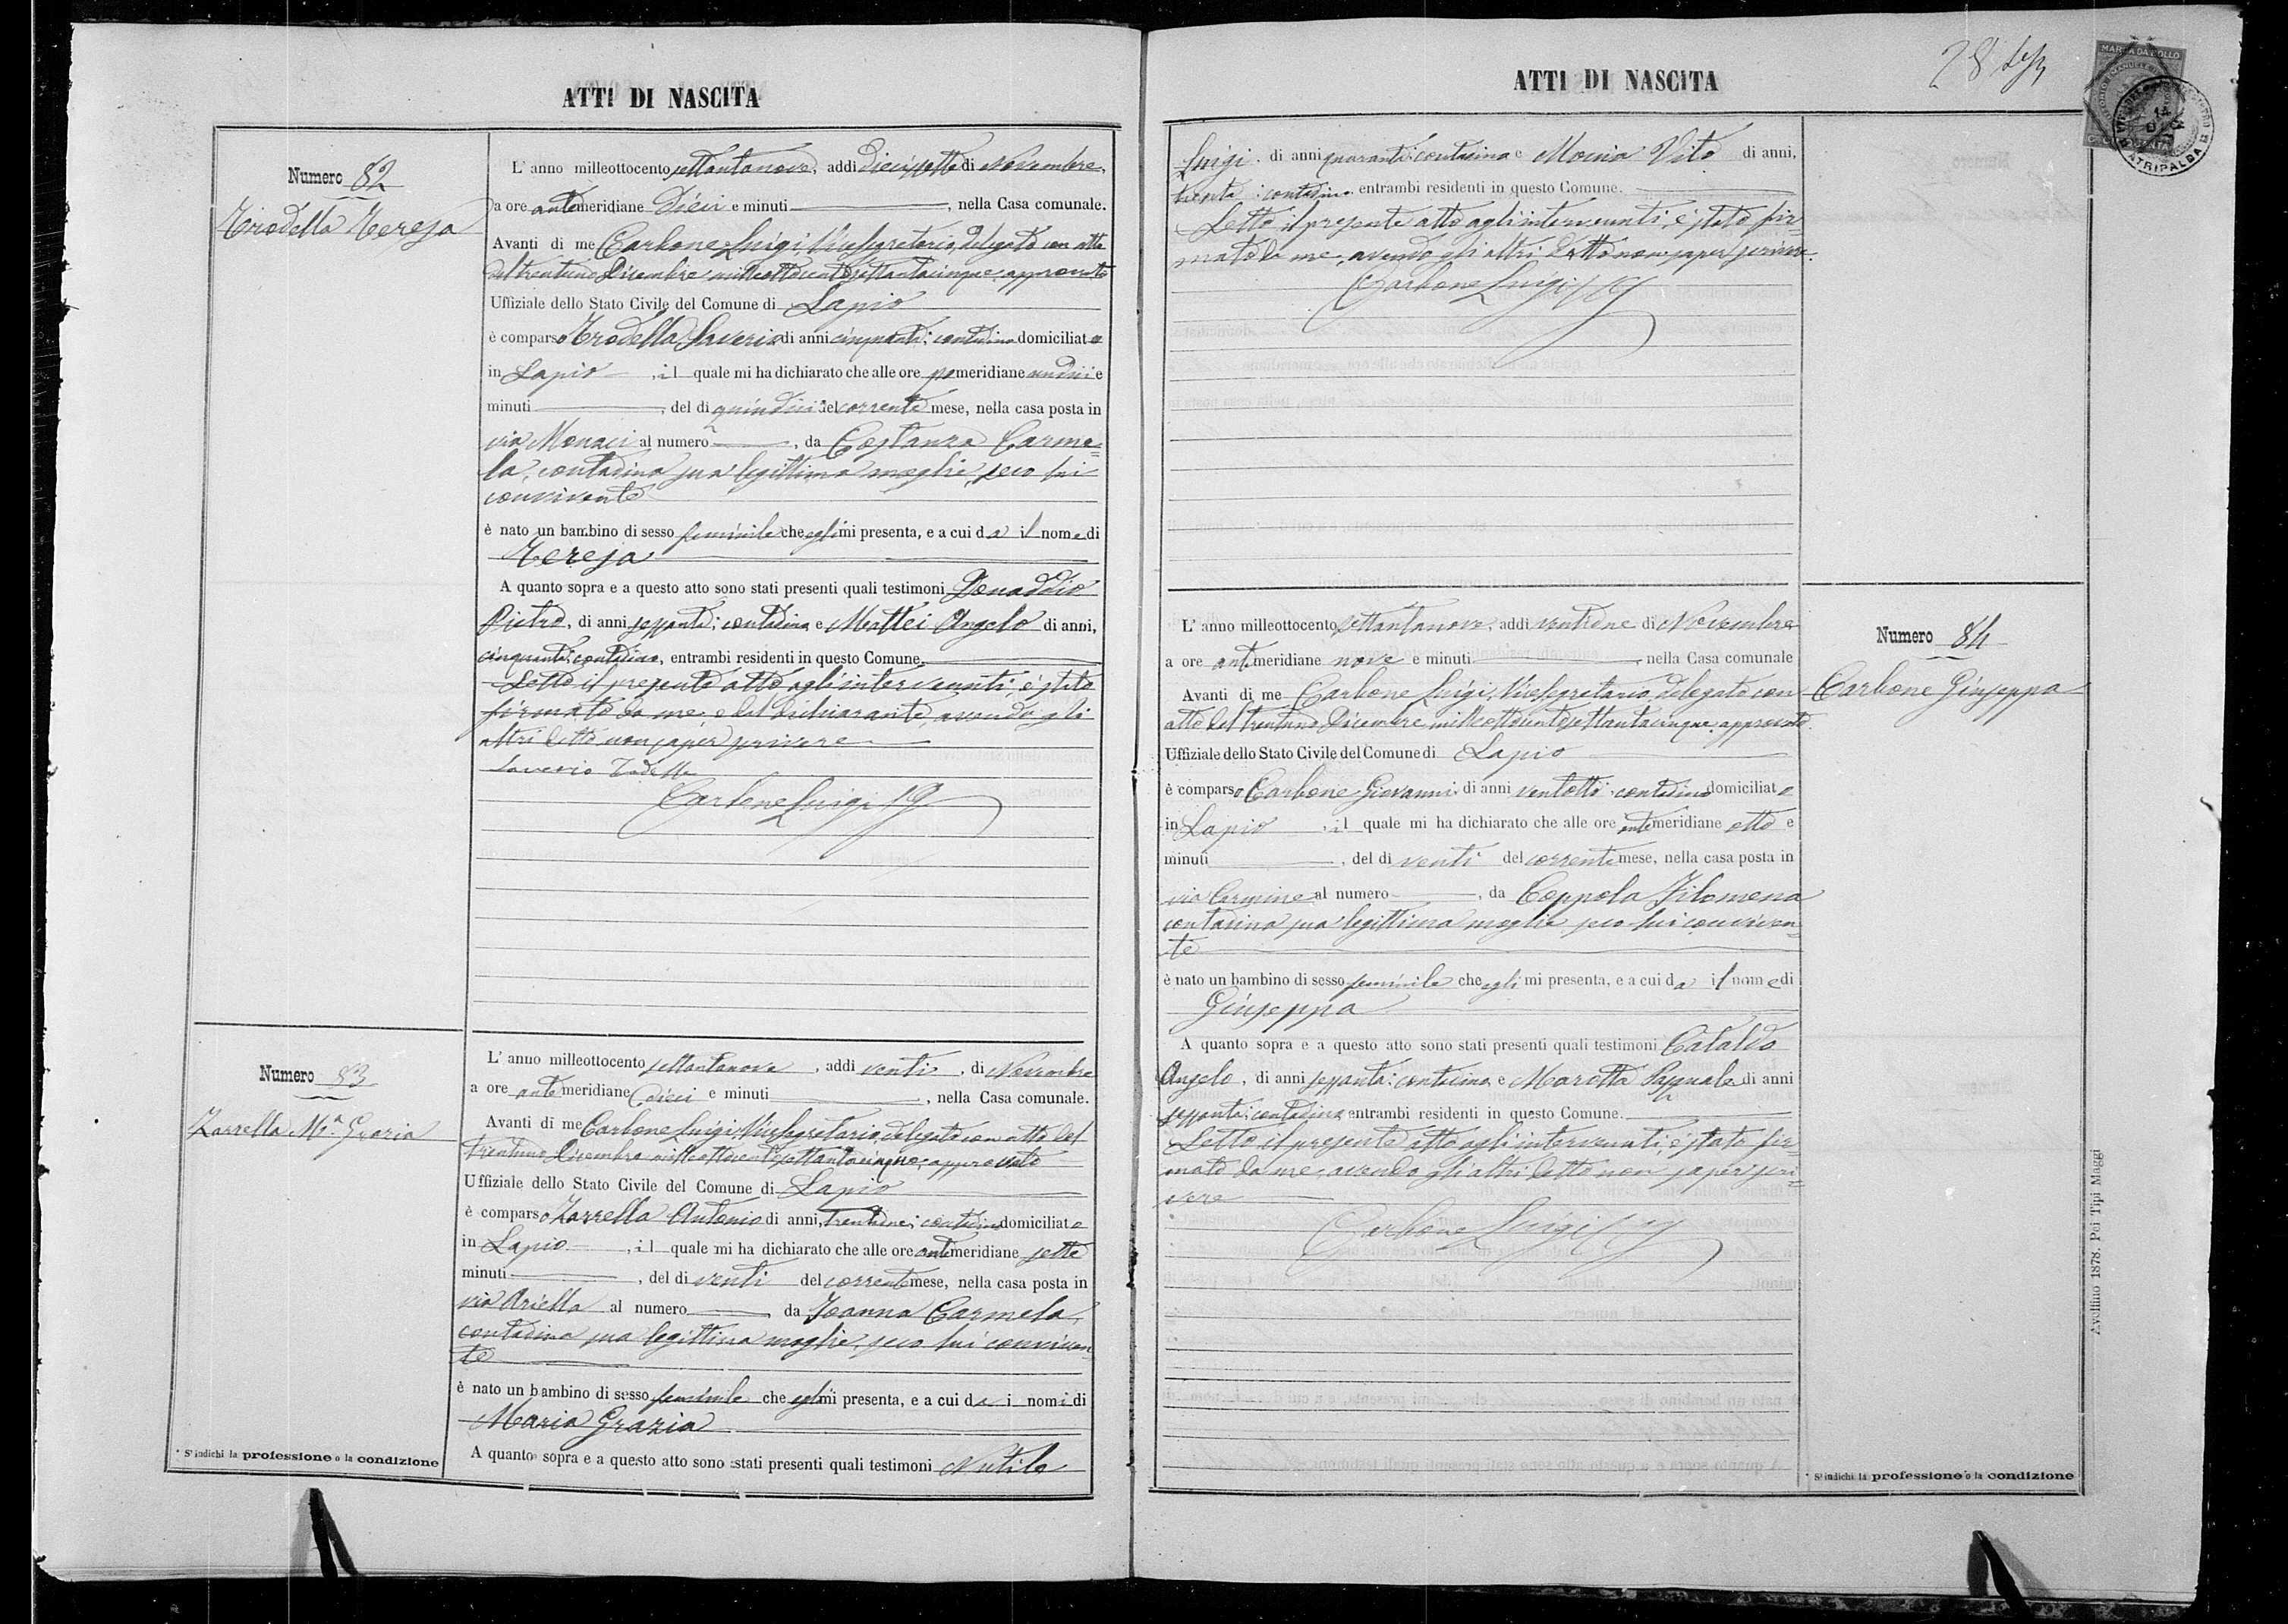 ATTI DI NASCITA
Numero 82
Trodella Teresa
L' anno milleottocento settantanove, addi diecissette di Novembre,
a ore antemeridiane dieci e minuti , nella Casa comunale.
Avanti di me Carbone Luigi, Vicesegretario, delegato con atto
del trentuno Dicembre milleottocentosettantacinque, approvato
Uffiziale dello Stato Civile del Comune di Lapio
è comparso Trodella Saverio di anni cinquanta; contadino domiciliato
in Lapio , il quale mi ha dichiarato che alle ore pomeridiane undici e
minuti , del di quindici del corrente mese, nella casa posta in
via Monaci al numero , da Costanza Carme=
la, contadina sua legittima moglie, seco lui
convivente
è nato un bambino di sesso feminile che egli mi presenta, e a cui da il nome di
Teresa
A quanto sopra e a questo atto sono stati presenti quali testimoni Donaddio
Pietro, di anni sessanta; contadino e Mattei Angelo di anni,
cinquanta; contadino, entrambi residenti in questo Comune.
Letto il presente atto agli intervenuti, è stato
firmato da me, e dal dichiarante, avendo gli
altri detto non saper scrivere
Saverio
Carbone Luigi
Numero 83
Zarrella Mª Grazia
L' anno milleottocento settantanove , addi venti , di Novembre
a ore antemeridiane dieci e minuti , nella Casa comunale.
Avanti di me Carbone Luigi, Vicesegretario, delegato con atto del
trentuno Dicembre milleottocentosettantacinque, approvato
Uffiziale dello Stato Civile del Comune di Lapio
è comparso Zarrella Antonio di anni, contadino domiciliato
in Lapio , il quale mi ha dichiarato che alle ore antemeridiane sette
minuti , del di venti del corrente mese, nella casa posta in
via Ariella al numero da Ioanna Carmela,
contadina sua legittima moglie, seco lui conviven=
te
è nato un bambino di sesso feminile che egli mi presenta, e a cui da i nomi di
Maria Grazia
A quanto sopra e a questo atto sono stati presenti quali testimoni
* S'indichi la professione o la condizione
ATTI DI NASCITA
28
MARCA DA BOLLO
ATRIPALDA
Luigi, di anni quaranta; contadino e Vito di anni,
trenta; contadino entrambi residenti in questo Comune.
Letto il presente atto agli intervenuti, è stato fir=
mato da me, avendo gli altri detto non saper scrivere.
Carbone Luigi
Numero 84
Carbone Giuseppa
L' anno milleottocento settantanove, addi ventuno di Novembre
a ore antimeridiane nove e minuti , nella Casa comunale
Avanti di me Carbone Luigi, Vicesegretario, delegato con
atto del trentuno Dicembre milleottocentosettantacinque, approvato.
Uffiziale dello Stato Civile del Comune di Lapio
è comparso Carbone Giovanni di anni ventotto; contadino domiciliato
in Lapio , il quale mi ha dichiarato che alle ore antemeridiane otto e
minuti , del di venti del corrente mese, nella casa posta in
via Carmine al numero , da Coppola Filomena
contadina sua legittima moglie, seco lui conviven=
te
è nato un bambino di sesso feminile che egli mi presenta, e a cui da il nome di
Giuseppa
A quanto sopra e a questo atto sono stati presenti quali testimoni Cataldo
Angelo, di anni sessanta; contadino, e Marotta Pasquale di anni
sessanta; contadino entrambi residenti in questo Comune.
Letto il presente atto agli intervenuti, è stato fir=
mato da me, avendo gli altri detto non saper scri=
vere
Carbone Luigi
* S'indichi la professione o la condizione
Avellino 1878. Pei Tipi Maggi